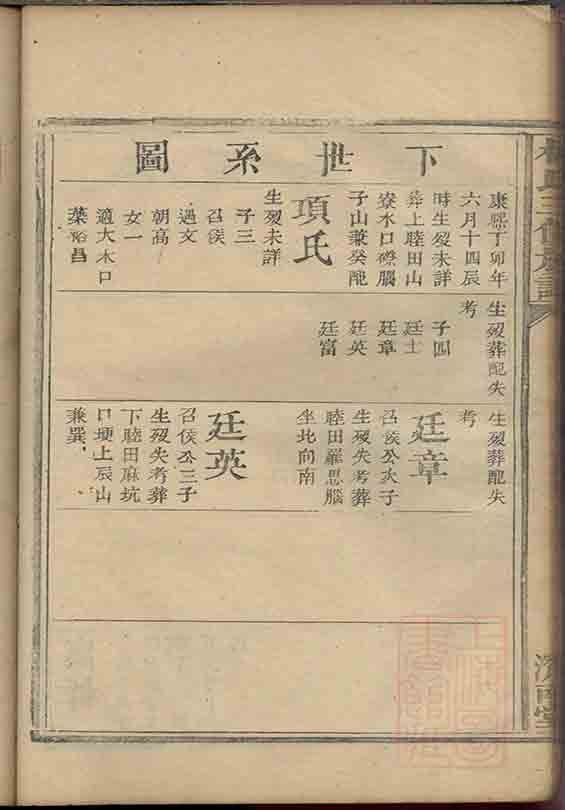 下世系圖
康熙丁卯年
六月十四辰
時生歿未詳
葬上睦田山
寮水口磜腦
子山兼癸配
項氏
生歿未詳
子三
召侯
遇文
朝高
女一
適大木口
葉裕昌
生歿葬配失
考
子四
廷士
廷章
廷英
廷富
生歿葬配失
考
廷章
召侯公次子
生歿失考葬
睦田羅思腦
坐北向南
廷英
召侯公三子
生歿失考葬
下睦田麻坑
口埂上辰山
兼巽